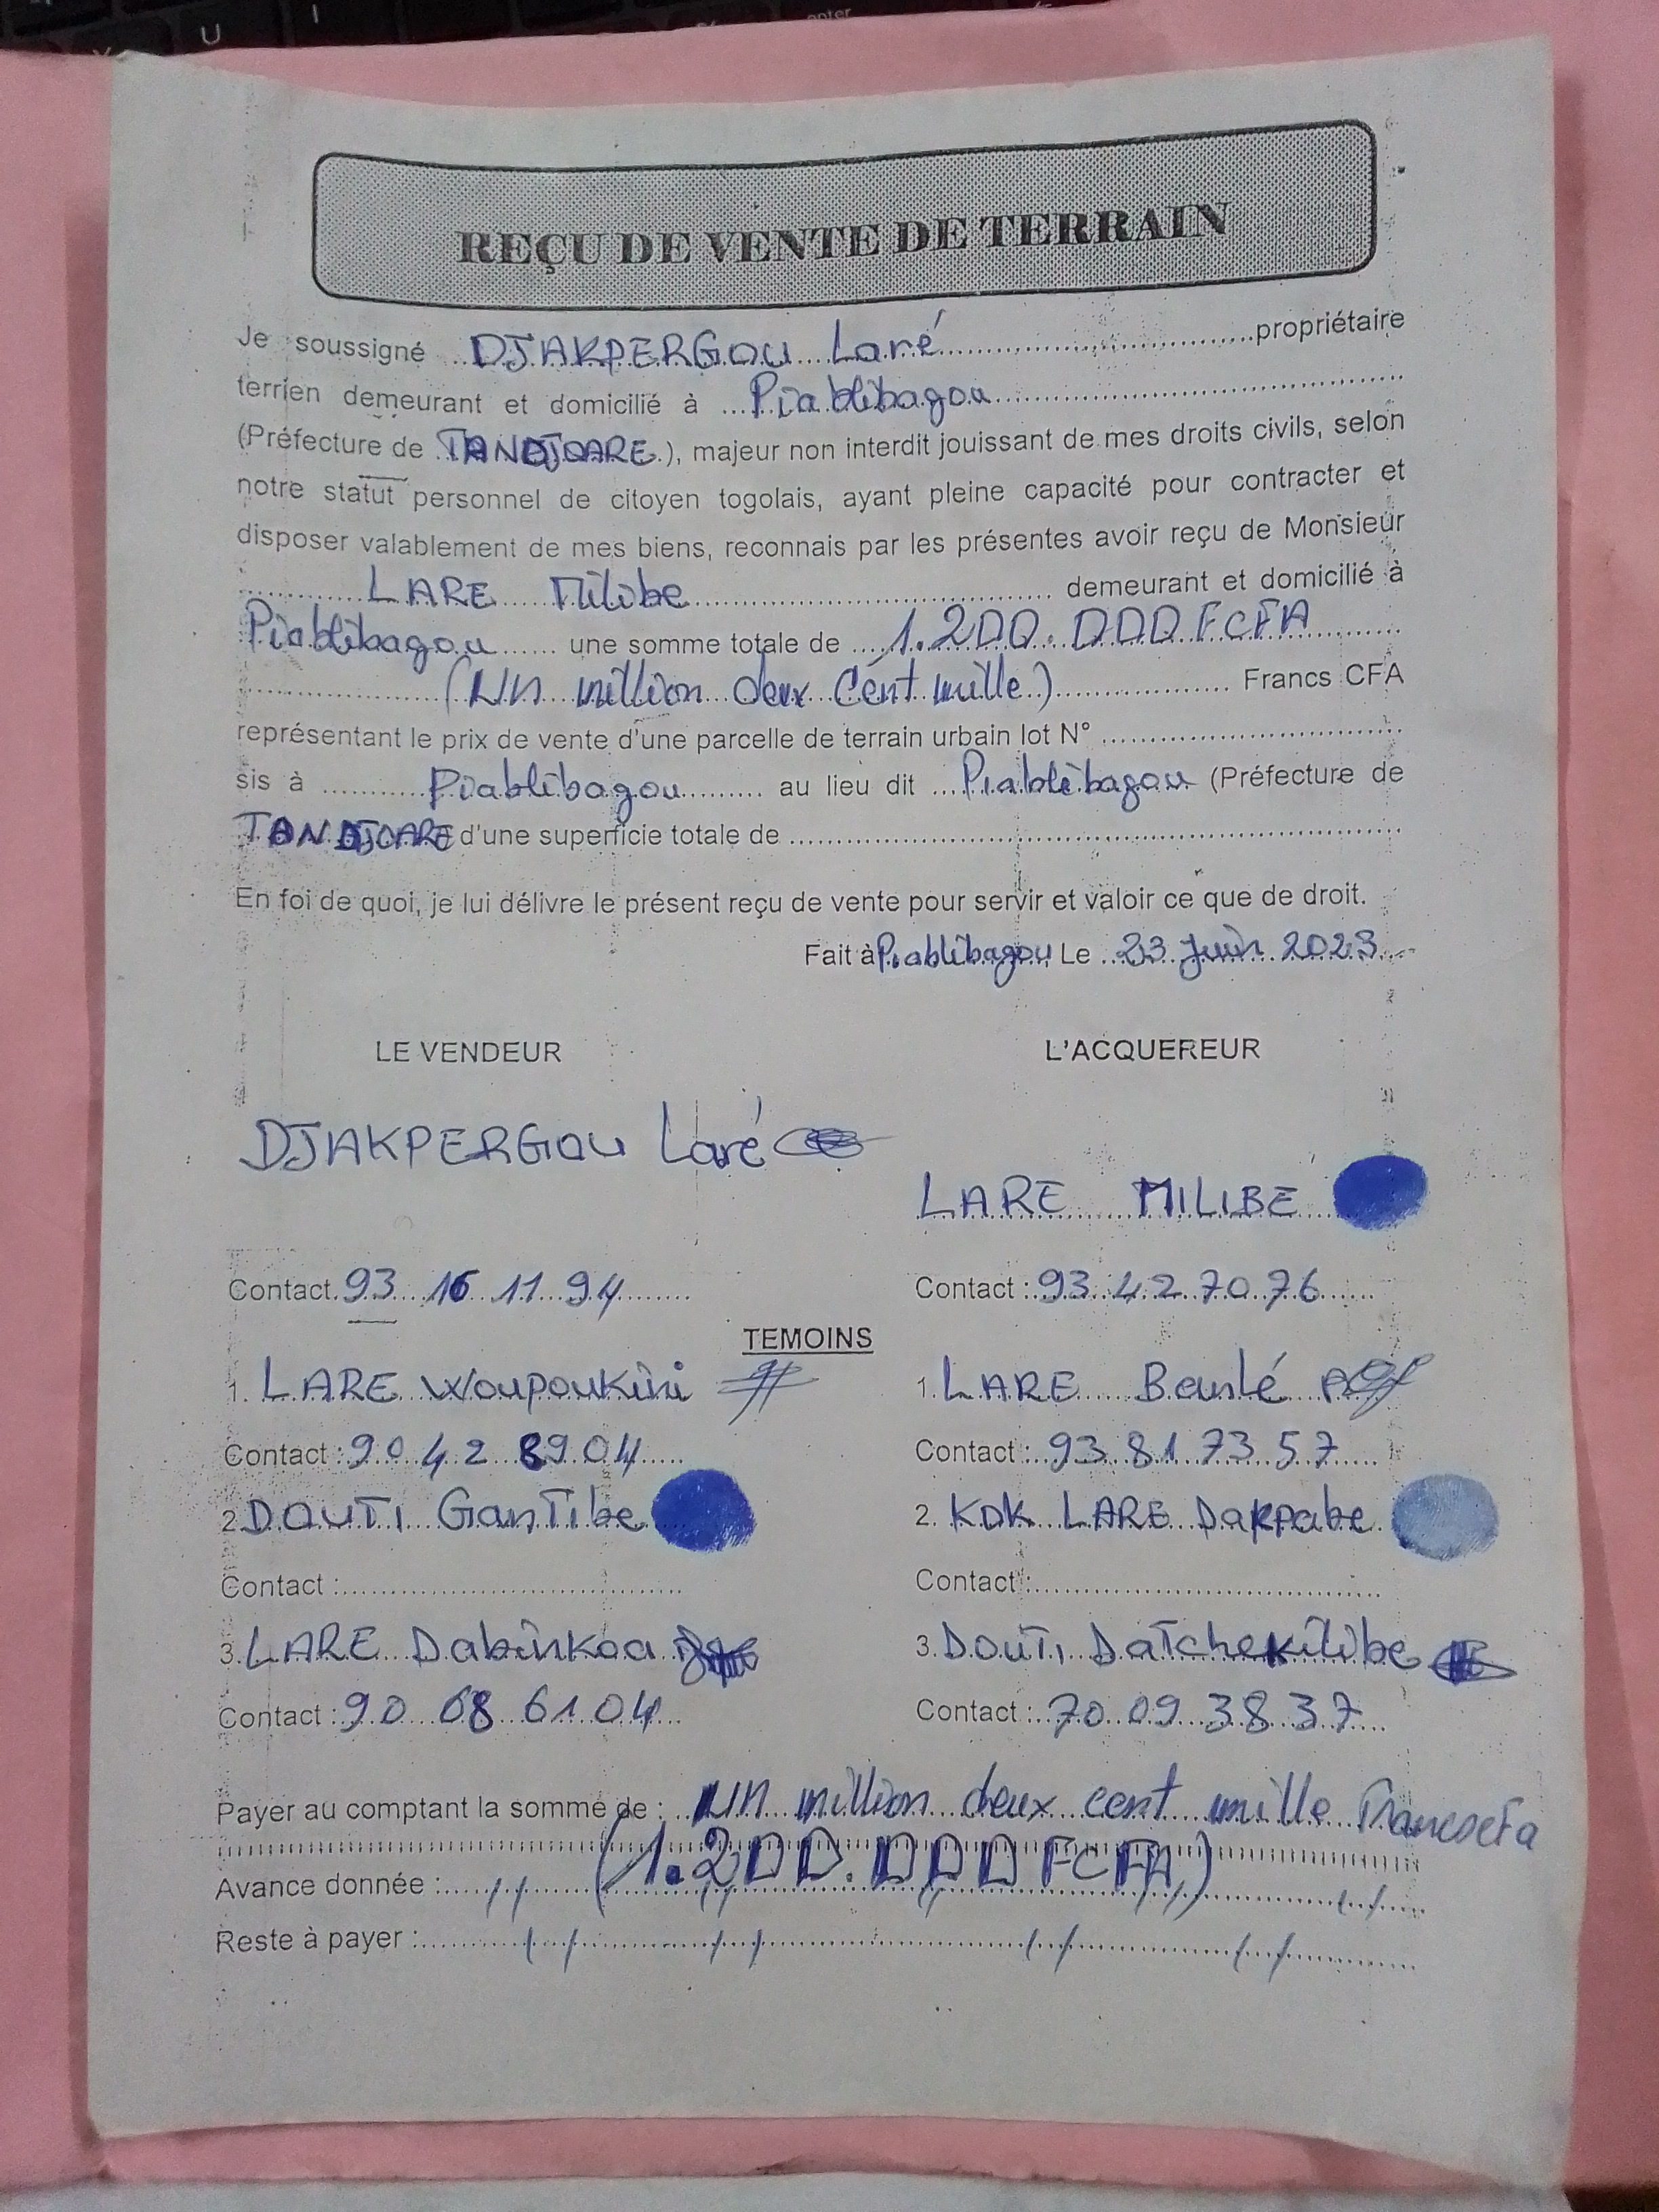 REÇU DE VENTE DE TERRAIN
Je soussigné DJAKPERGOU Laré propriétaire
terrien demeurant et domicilié à Piablibagou
(Préfecture de TANDJOARE), majeur non interdit jouissant de mes droits civils, selon
notre statut personnel de citoyen togolais, ayant pleine capacité pour contracter et
disposer valablement de mes biens, reconnais par les présentes avoir reçu de Monsieur
LARE Milibe demeurant et domicilié à
Piablibagou une somme totale de 1.200.000 FCFA
(UN million deux cent mille) Francs CFA
représentant le prix de vente d'une parcelle de terrain urbain lot N°
sis à Piablibagou au lieu dit Piablibagou (Préfecture de
TANDJOARE d'une superficie totale de
En foi de quoi, je lui délivre le présent reçu de vente pour servir et valoir ce que de droit.
Fait à Piablibagou Le 23 Juin 2023
LE VENDEUR L'ACQUEREUR
DJAKPERGOU Laré
LARE MILIBE
Contact 93 16 11 94 Contact : 93 42 70 76
TEMOINS
1. LARE Woupoukini 1. LARE
Contact : 90 42 89 04 Contact : 93 81 73 57
2. DOUTI GanTibe 2. KDK LARE Dakpabe
Contact : Contact :
3. LARE Dabinkoa 3. DOUTI DaTchekilibe
Contact : 90 08 61 04 Contact : 70 09 38 37
Payer au comptant la somme de : UN million deux cent mille Francscfa
(1.200.000 FCFA)
Avance donnée :
Reste à payer :